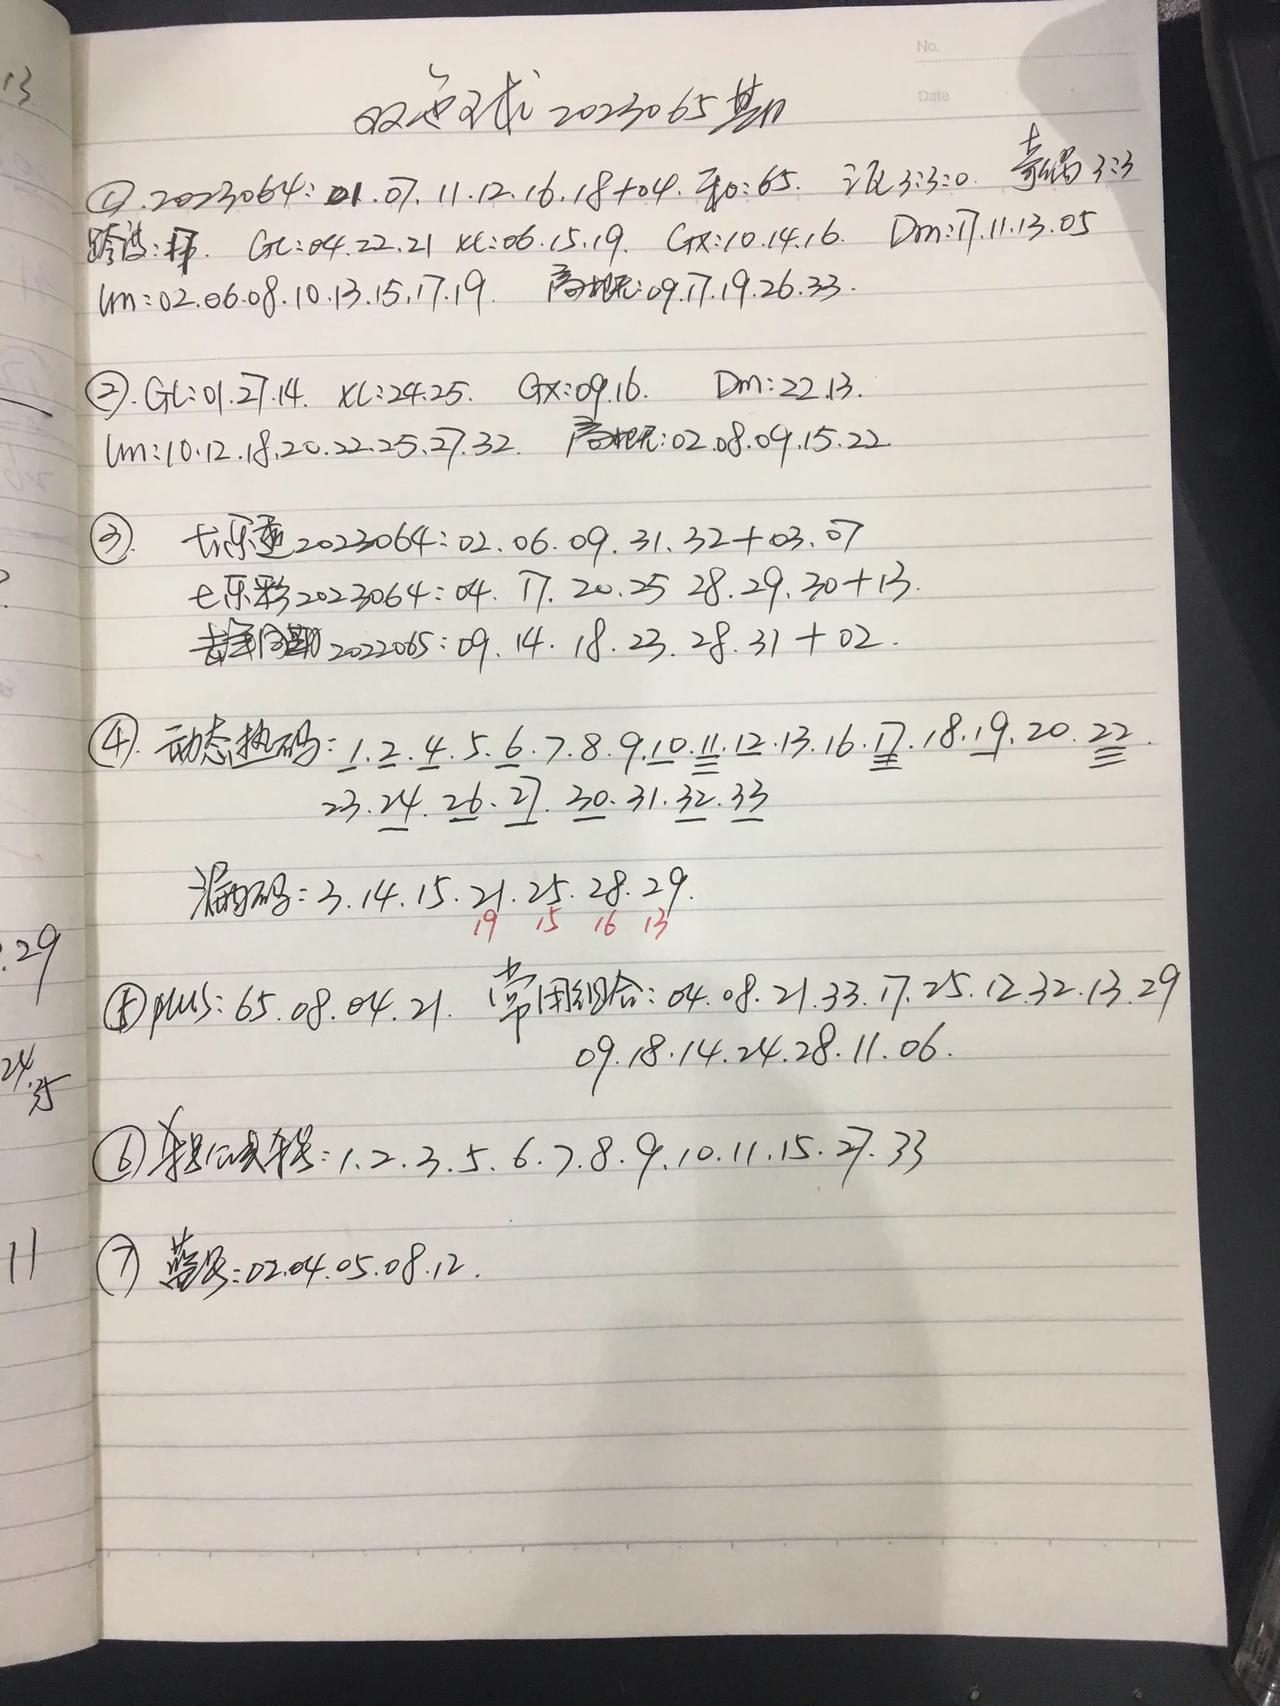 No.
Date
双色球2023065期
① 2023064: 01.07.11.12.16.18+04. 和:65. 3:3:0. 奇偶3:3
跨度:17. GL:04.22.21 XL:06.15.19. GX:10.14.16. Dm:17.11.13.05
lm:02.06.08.10.13.15.17.19. 高概:09.17.19.26.33.
②. GL:01.27.14. XL:24.25. GX:09.16. Dm:22.13.
lm:10.12.18.20.22.25.27.32. 高概:02.08.09.15.22
③. 大乐透2023064:02.06.09.31.32+03.07
七乐彩2023064:04.17.20.25 28.29.30+13.
去年同期2022065:09.14.18.23.28.31+02.
④. 动态热码:1.2.4.5.6.7.8.9.10.11.12.13.16.17.18.19.20.22.
23.24.26.27.30.31.32.33
漏的码:3.14.15.21.25.28.29.
19 15 16 13
⑤ plus:65.08.04.21. 常用组合:04.08.21.33.17.25.12.32.13.29
09.18.14.24.28.11.06.
⑥ :1.2.3.5.6.7.8.9.10.11.15.27.33
⑦ 蓝号:02.04.05.08.12.
13
.29
24.25
11